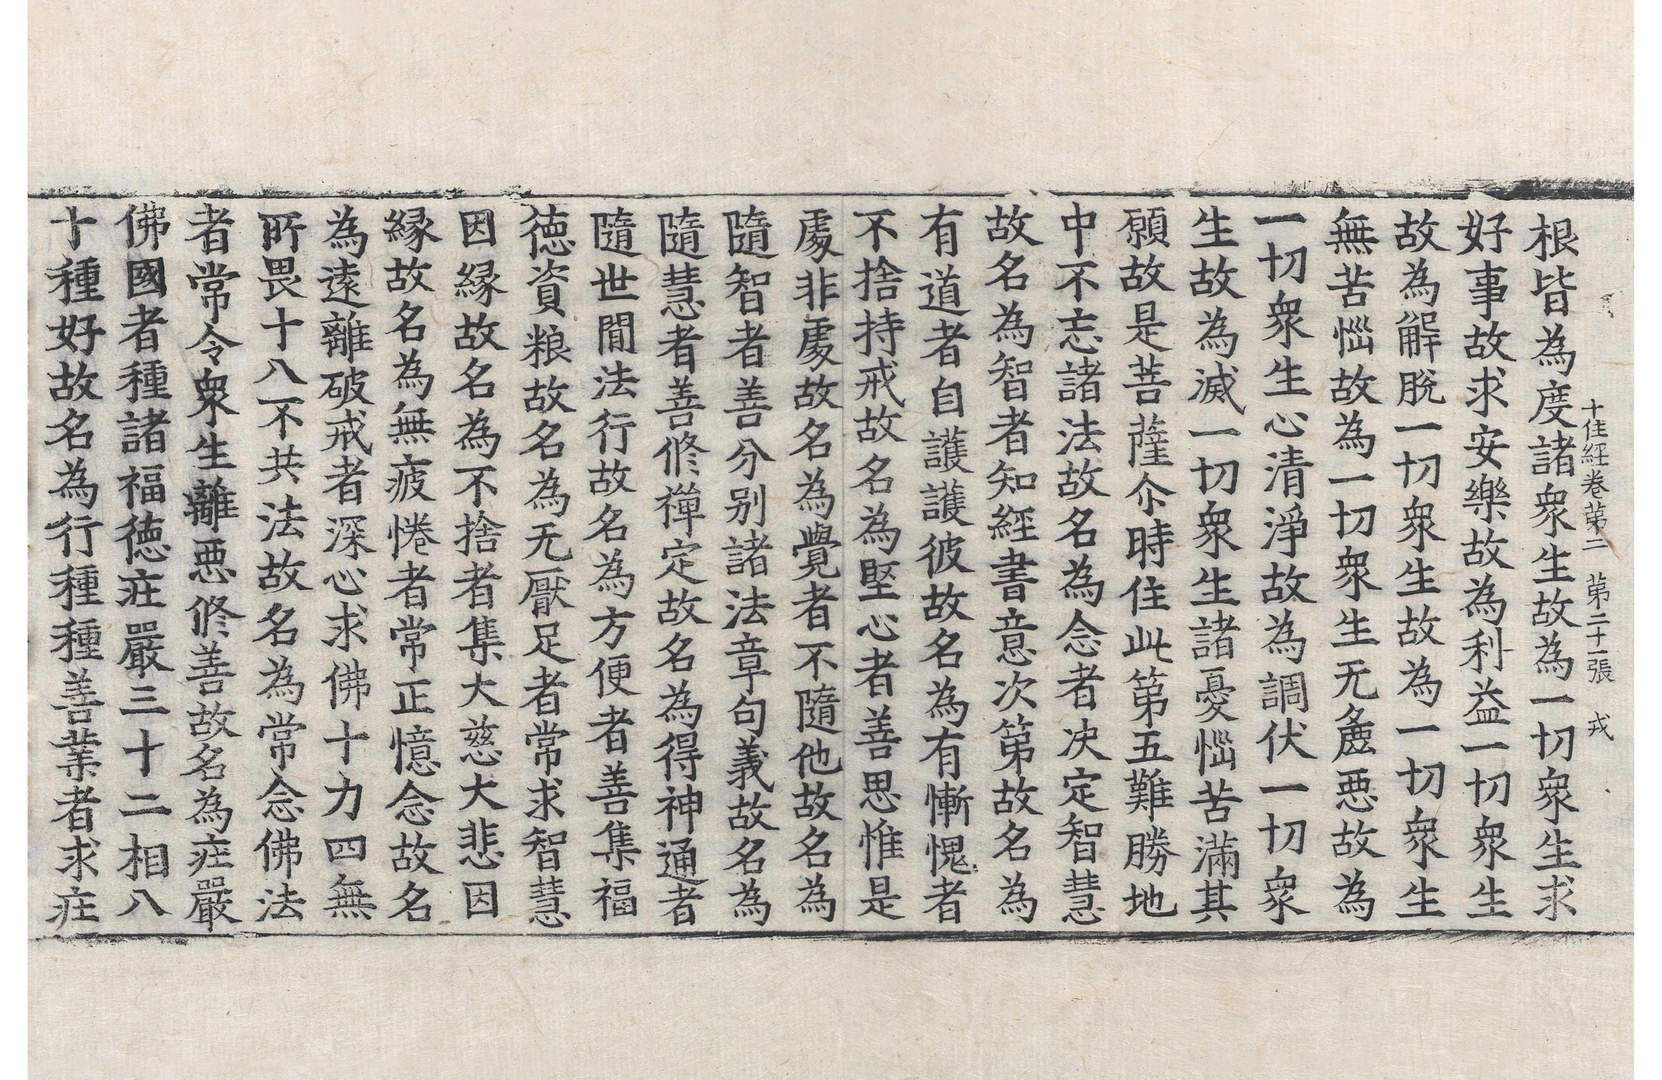 十住経卷苐二　第二十一張　戎
根皆為度諸衆生故為一切衆生求
好事故求安樂故為利益一切衆生
故為解脫一切衆生故為一切衆生
無苦惱故為一切衆生无麁惡故為
一切衆生心清淨故為調伏一切衆
生故為滅一切衆生諸憂惱苦滿其
願故是菩薩尒時住此第五難勝地
中不忘諸法故名為念者決定智慧
故名為智者知經書意次第故名為
有道者自護護彼故名為有慚愧者
不捨持戒故名為堅心者善思惟是
處非處故名為覺者不隨他故名為
隨智者善分別諸法章句義故名為
隨慧者善修禪定故名為得神通者
隨世閒法行故名為方便者善集福
徳資粮故名為无厭足者常求智慧
因縁故名為不捨者集大慈大悲因
縁故名為無疲惓者常正憶念故名
為遠離破戒者深心求佛十力四無
所畏十八不共法故名為常念佛法
者常令衆生離惡修善故名為莊嚴
佛國者種諸福徳莊嚴三十二相八
十種好故名為行種種善業者求莊